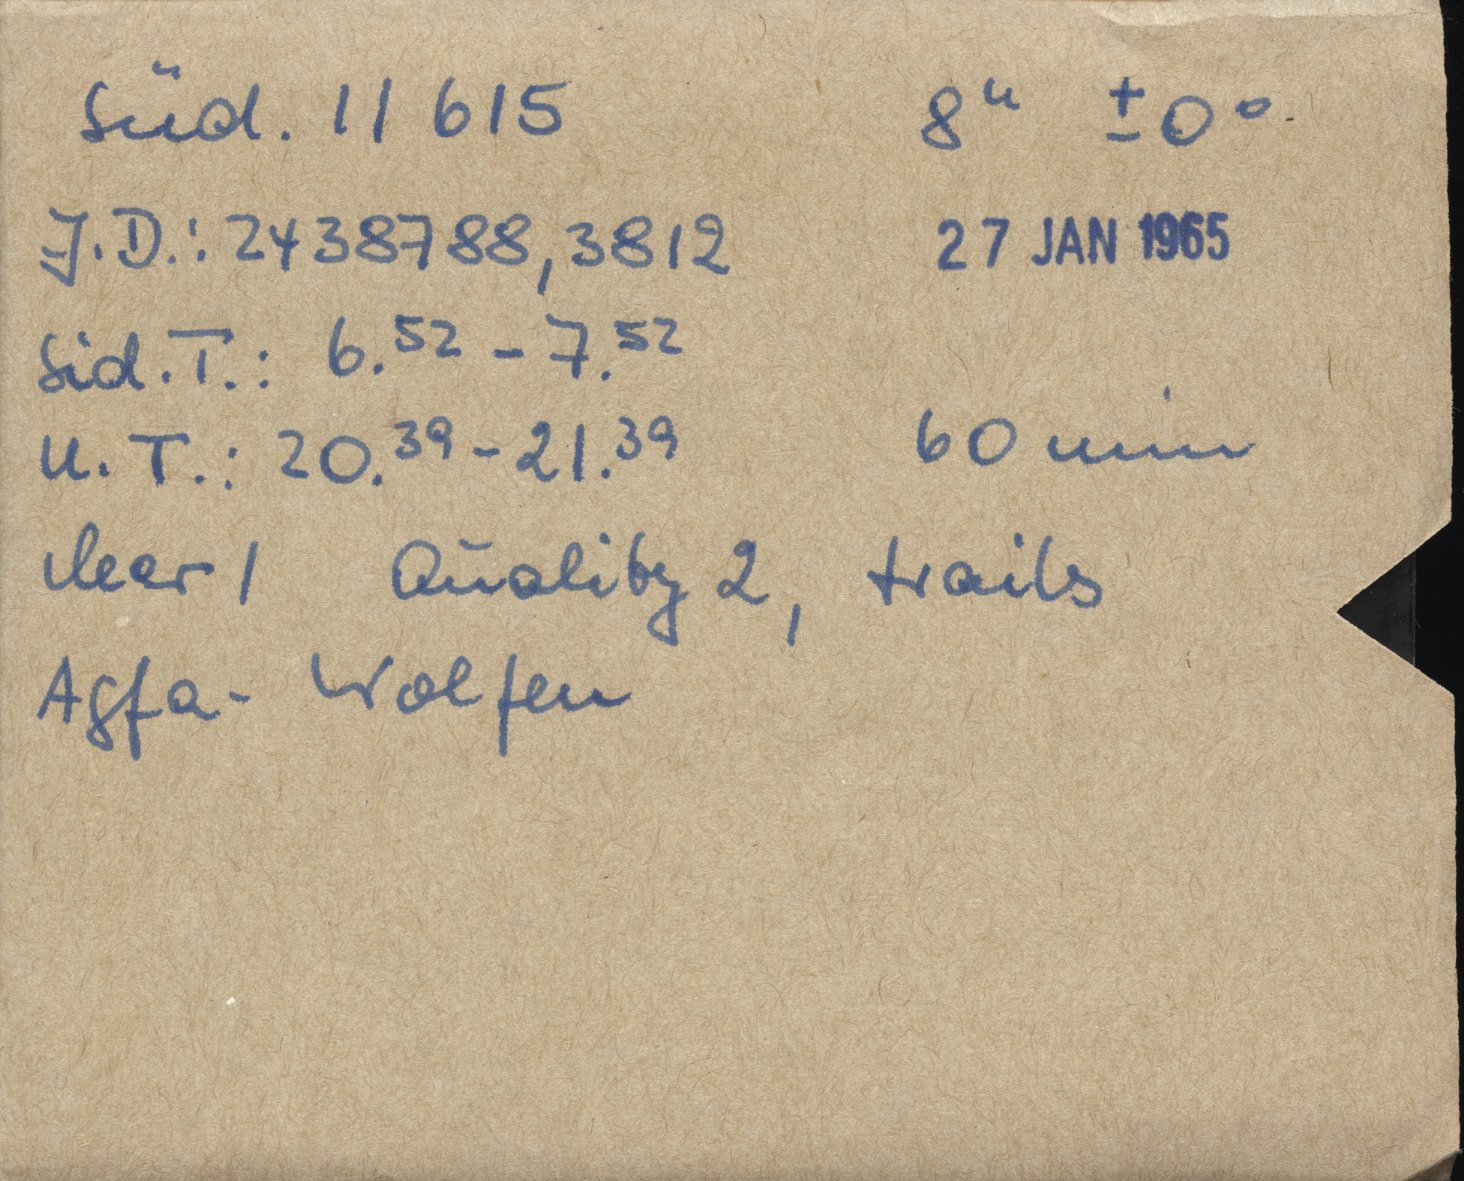 Süd. 11615 8ʰ ±0°
J.D.: 2438788,3812 27 JAN 1965
Sid.T.: 6.⁵² - 7.⁵²
U.T.: 20.³⁹ - 21.³⁹ 60 min
clear 1 Quality 2, trails
Agfa- Wolfen